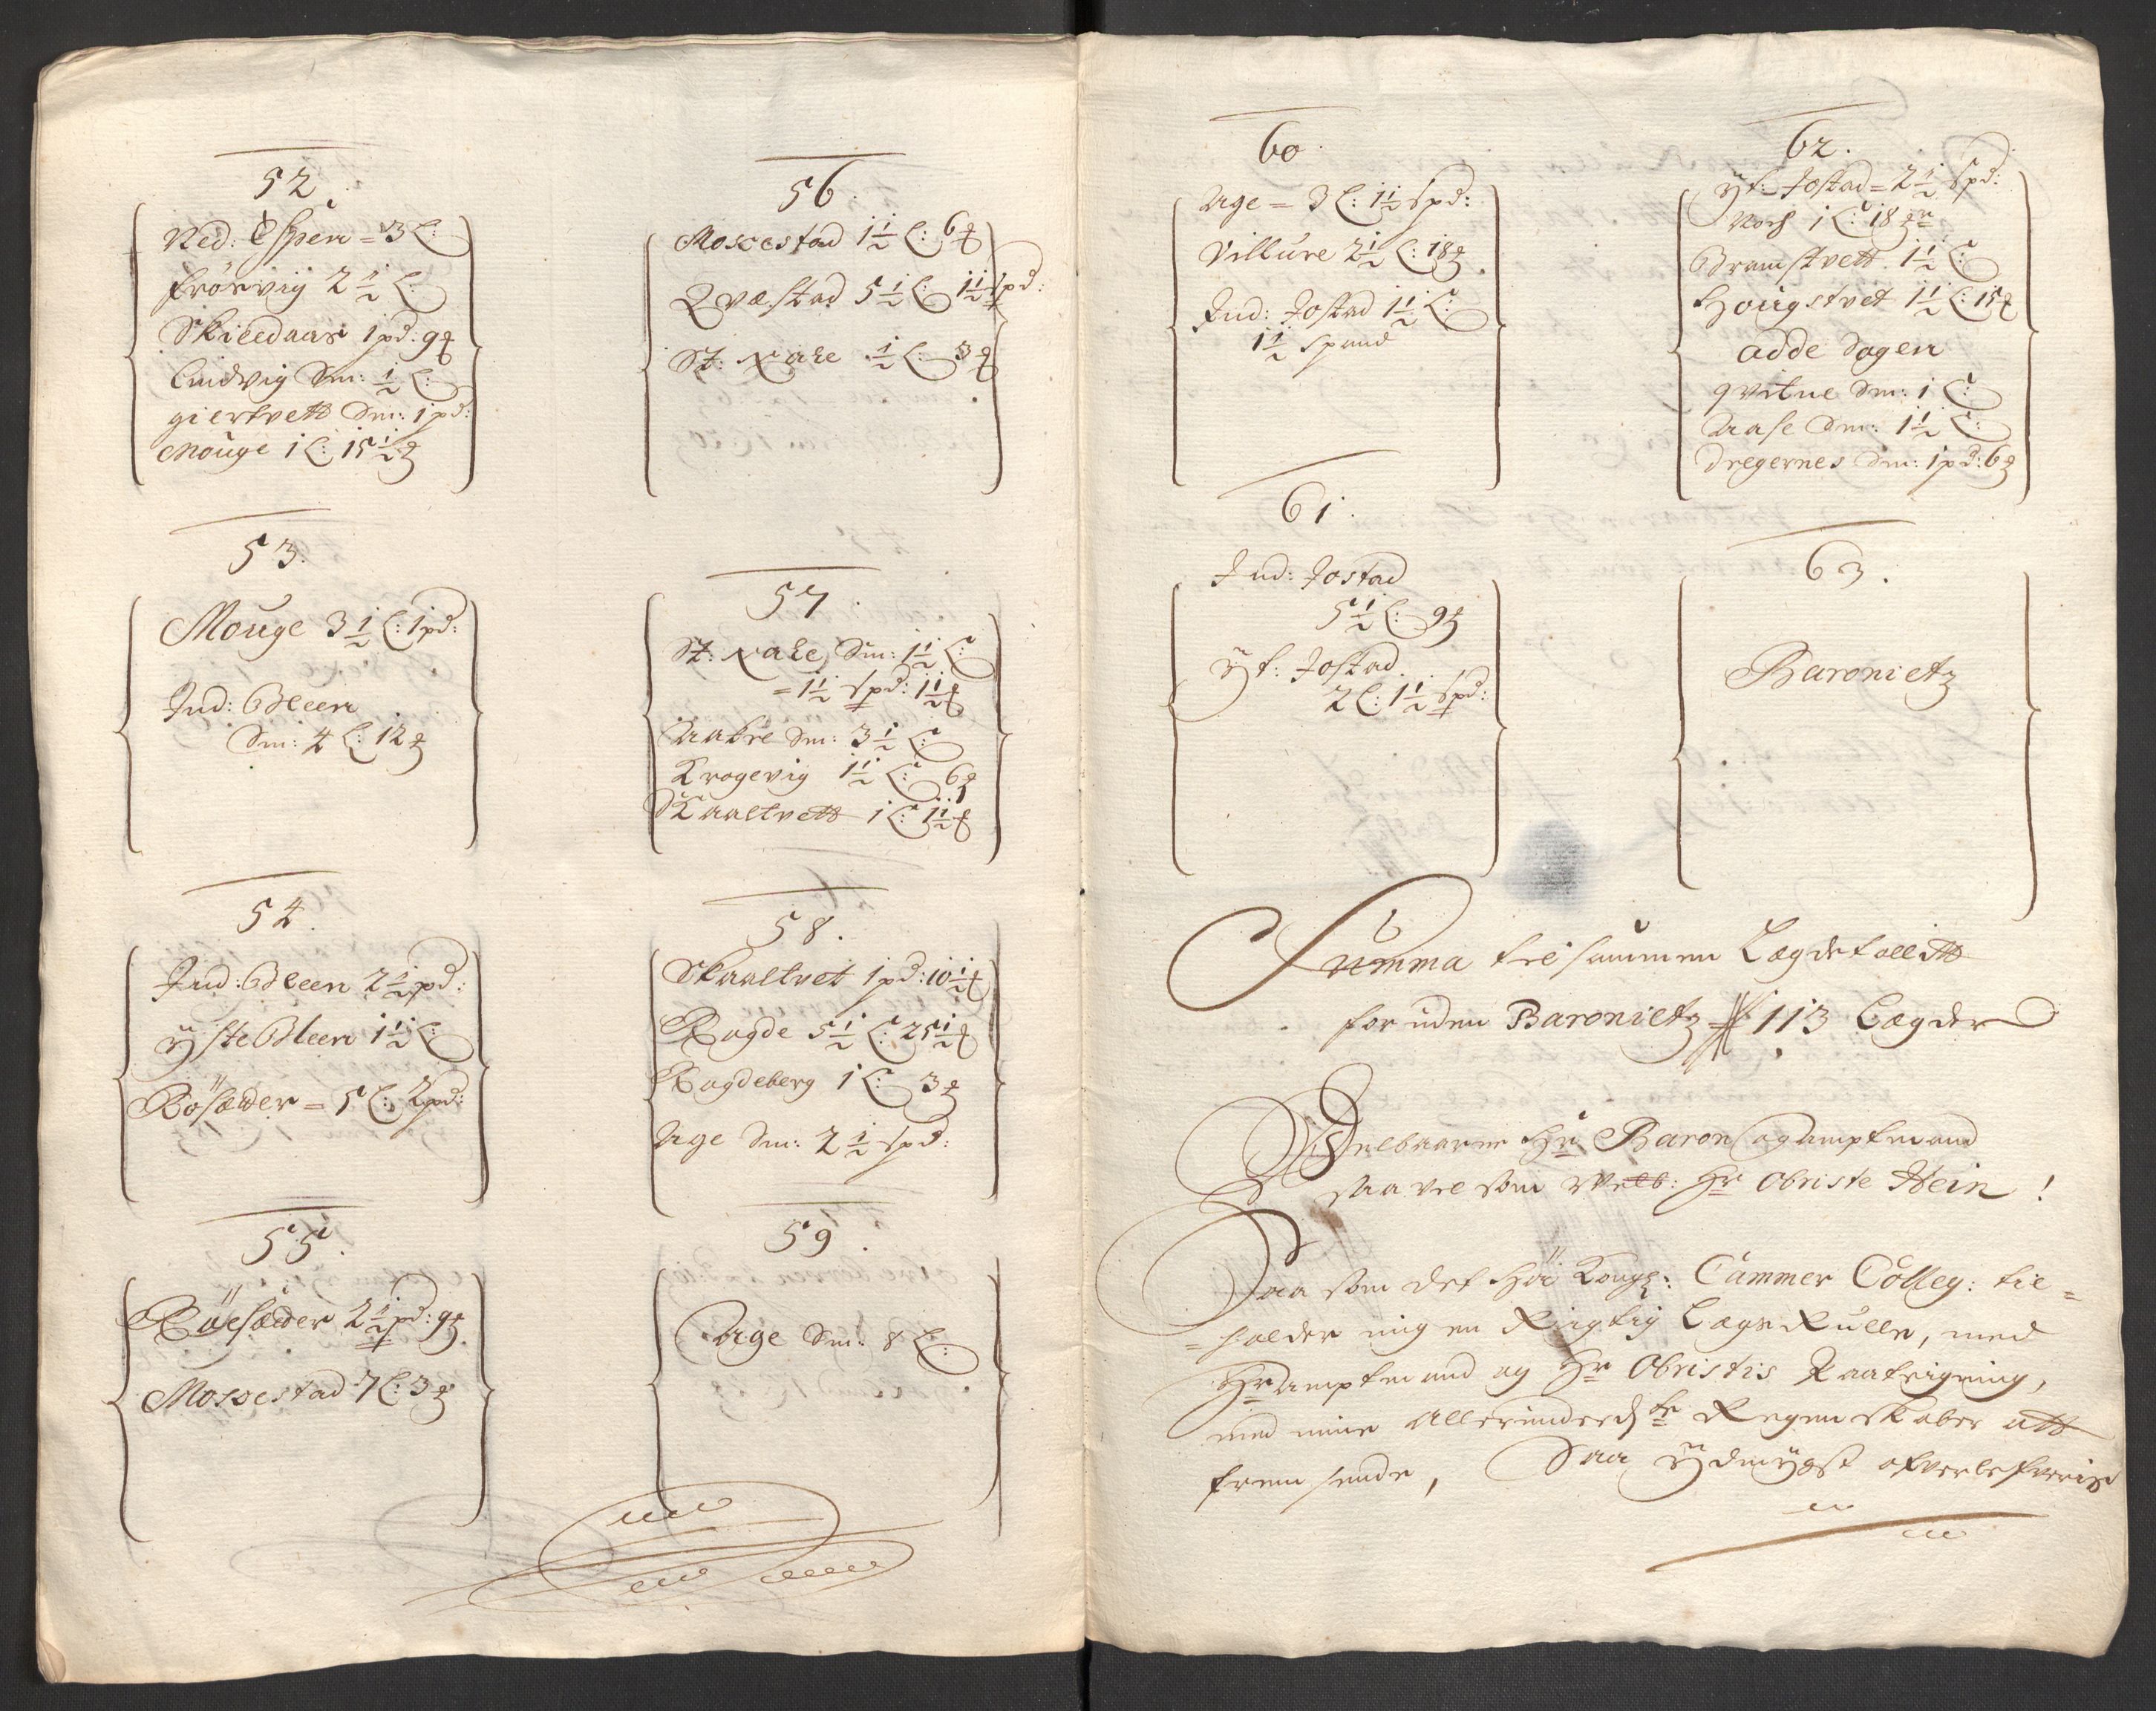 52.
Ned: Espen = 3 L:
Frörvig 2 1/2 L:
Skieldaas 1 pd: 9 ℔
Lindvig Sm: 1/2 L:
giertvett Sm: 1 pd:
Mouge 1 L: 15 1/2 ℔
53.
Mouge 3 1/2 L: 1 pd:
Ind: Bleen
Sm: 4 L: 12 ℔
54.
Ind: Bleen 2 1/2 pd:
ÿste Bleen 1 1/2 L:
Rösætter = 5 L: 2 pd:
55.
Röesætter 2 1/2 pd: 9 ℔
Mossestad 7 L: 3 ℔
56.
Mossestad 1 1/2 L: 6 ℔
Qvæstad 5 1/2 L: 1 1/2 spd:
St: Nake 1/2 L: 3 ℔
57.
St: Nake Sm: 1 1/2 L:
= 1 1/2 spd: 1 1/2 ℔
Aakre Sm: 3 1/2 L:
Krogevig 1 1/2 L: 6 ℔
Skaaltvett 1 L: 1 1/2 ℔
58.
Skaaltvet 1 pd: 10 1/2 ℔
Rogde 5 1/2 L: 25 1/2 ℔
Rogdeberg 1 L: 3 ℔
Age Sm: 2 1/2 spd:
59.
Age Sm: 8 L:
60.
Age = 3 L: 1 1/2 spd:
Villure 2 1/2 L: 18 ℔.
Ind: Jostad 1 1/2 L:
1 1/2 spand
61.
Ind: Jostad
5 1/2 L: 9 ℔
ÿt: Jostad
2 L: 1 1/2 spd:
62.
ÿt: Jostad = 2 1/2 spd:
Noch 1 L: 18 ℔
Bramstvett 1 1/2 L:
Hougstvet 1 1/2 L: 15 ℔
adde Sogen
qvitne Sm: 1 L:
Aase Sm: 1 1/2 L:
Dregernes Sm: 1 pd: 6 ℔
63.
Baronietz
Summa tilsammen Lægdetallitt
foruden Baronietz 113 Lægder
Velbaarne Hr Baron og amptmand
saa vel som Welb: Hr Obriste Hein!
Saa som det höi Kongl: Cammer Colleg: til=
=holder mig en Rigtig Lægs Rulle, med
Hr amptmand og Hr Obristis Paateigning,
med mine Allerunderdste Regenskaber att
frem sende, Saa ÿdmÿgst